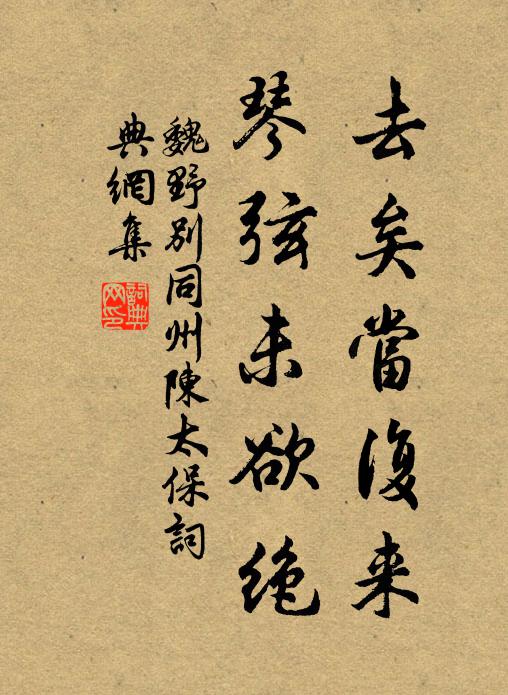 去矣當復来
琴弦未欲绝
魏野别同州陳太保詞
典網集
詞典
网印